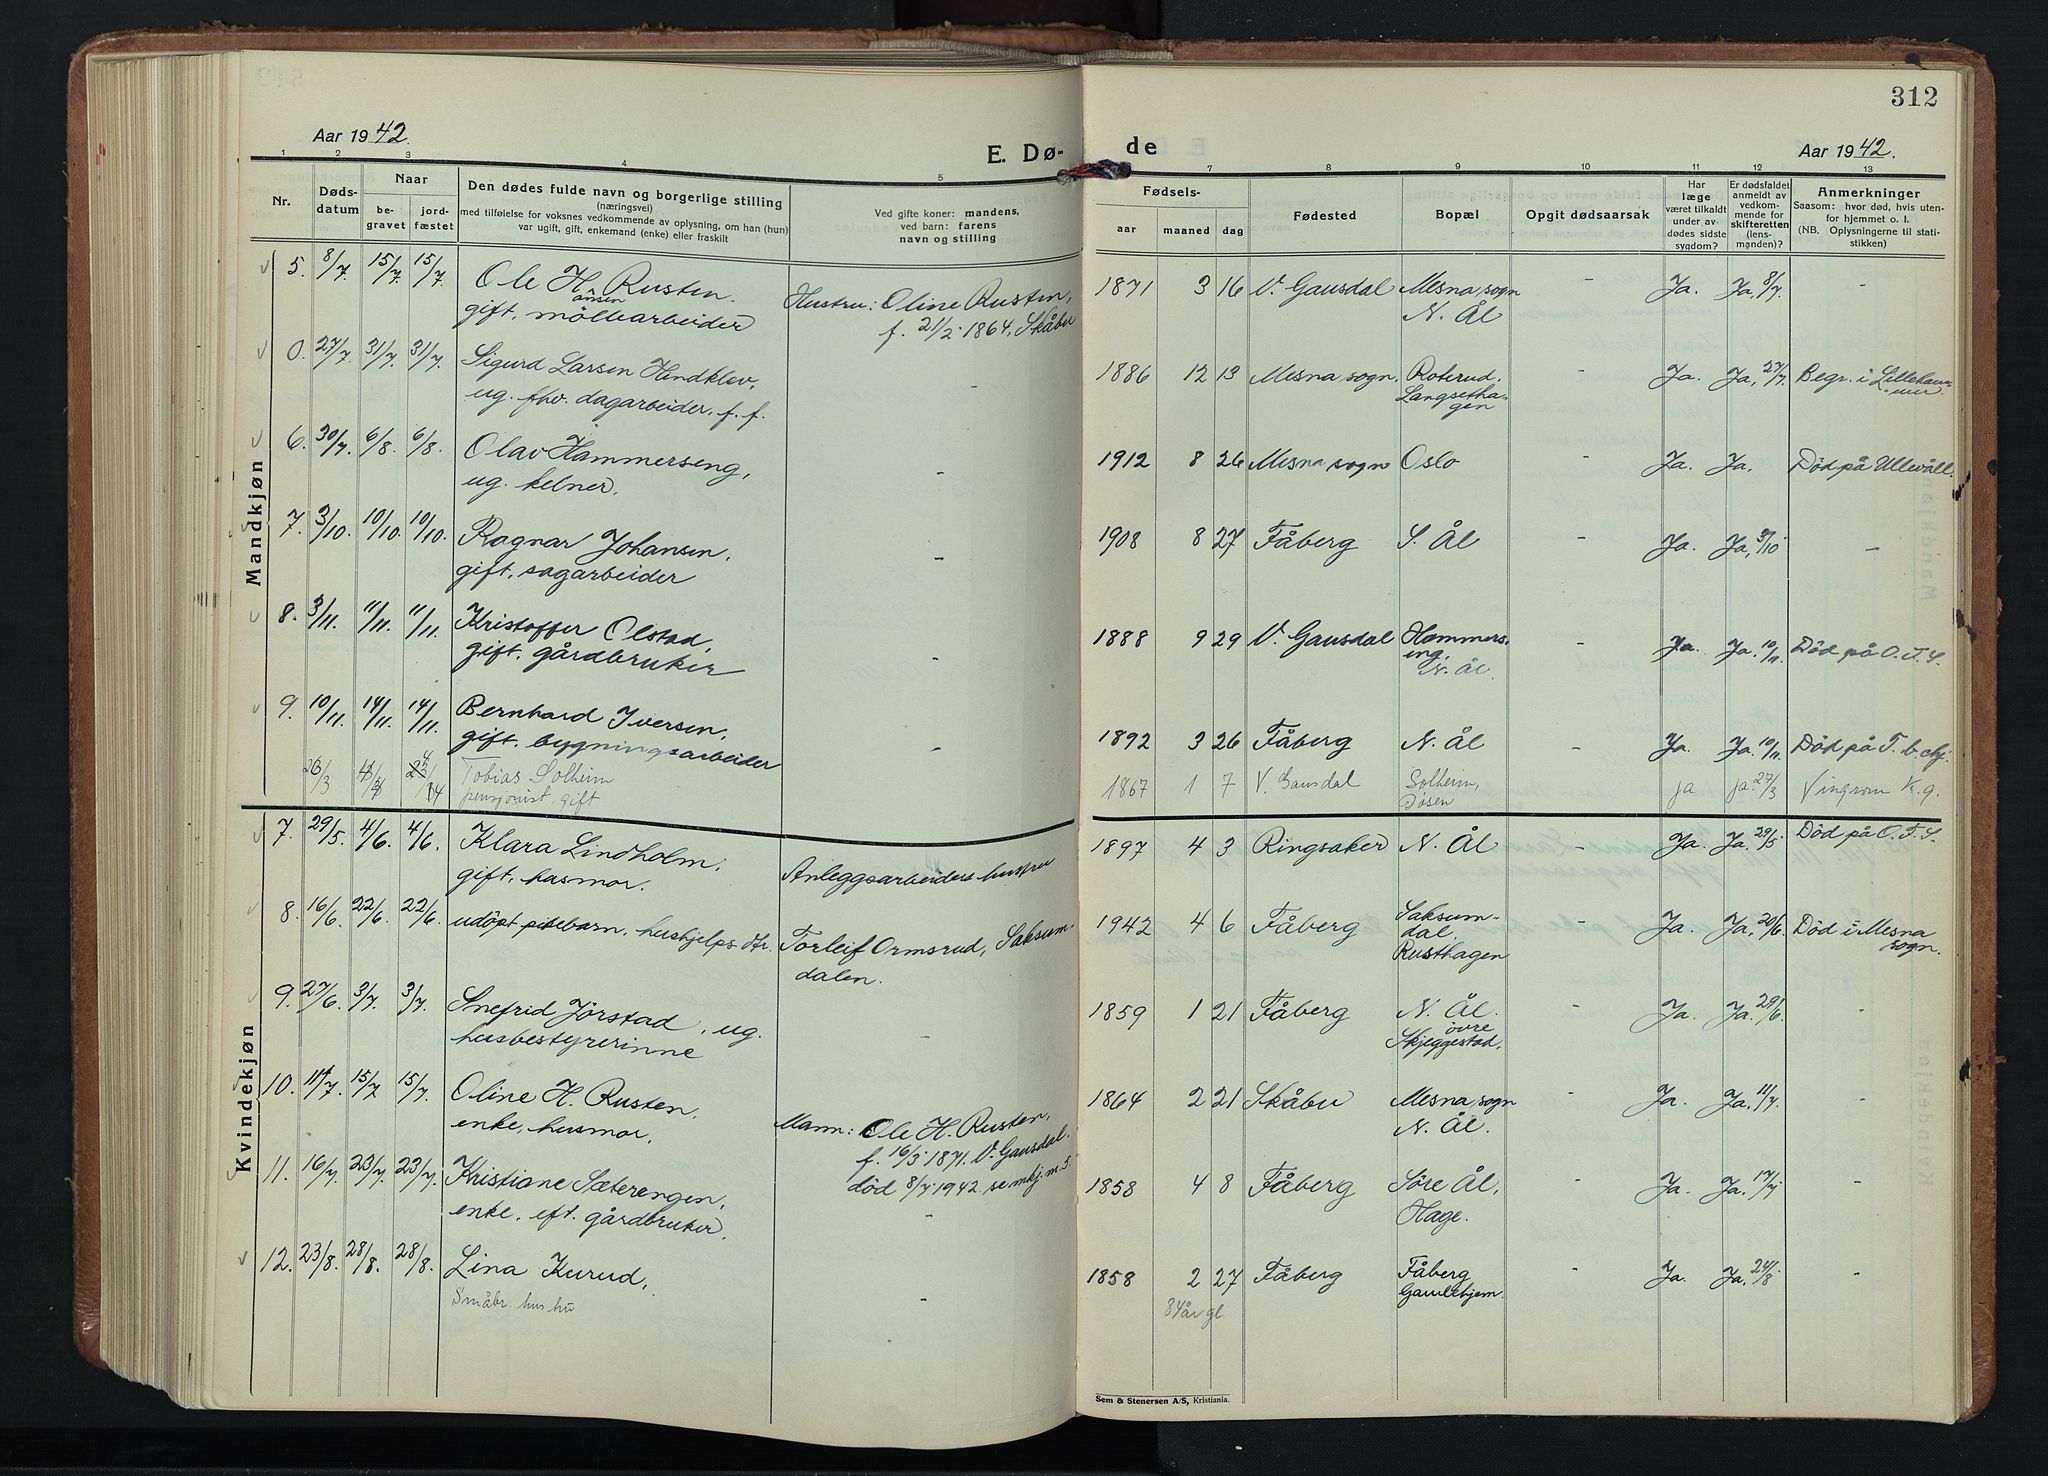 312
Aar 1942.
E. Dø-
de
Aar 1942.
1 2 3 4 5 7 8 9 10 11 12 13
Nr.
Døds-
datum
Naar
be-
gravet
jord-
fæstet
Den dødes fulde navn og borgerlige stilling
(næringsvei)
med tilføielse for voksnes vedkommende av oplysning, om han (hun)
var ugift, gift, enkemand (enke) eller fraskilt
Ved gifte koner: mandens,
ved barn: farens
navn og stilling
Fødsels-
aar maaned dag
Fødested
Bopæl
Opgit dødsaarsak
Har
læge
været tilkaldt
under av-
dødes sidste
sygdom?
Er dødsfaldet
anmeldt av
vedkom-
mende for
skifteretten
(lens-
manden)?
Anmerkninger
Saasom: hvor død, hvis uten-
for hjemmet o. l.
(NB. Oplysningerne til stati-
stikken)
Mandkjøn
5. 8/7. 15/7. 15/7. Ole H. Rusten. Hustru: Oline Rusten, 1871 3 16 V. Gausdal Mesna sogn - Ja. Ja, 8/7. -
ansen
gift, möllearbeider f. 21/2. 1864, Skåbu N. Ål
0. 27/7. 31/7. 31/7. Sigurd Larsen Hindklev, - 1886 12 13 Mesna sogn. Roterud. - Ja. Ja, 27/7. Begr. i Lilleham-
ug. fhv. dagarbeider. f. f. Langsetha- mer.
gen
6. 30/7. 6/8. 6/8. Olav Hammerseng, - 1912 8 26 Mesna sogn Oslo - Ja. Ja. Död på Ullevåll.
ug. kelner.
7. 3/10. 10/10. 10/10. Ragnar Johansen, - 1908 8 27 Fåberg S. Ål - Ja. Ja, 3/10 -
gift, sagarbeider
8. 3/11. 11/11. 11/11. Kristoffer Olstad, - 1888 9 29 V. Gausdal Hammers- - Ja. Ja. 10/11. Död på O. F. S.
gift, gårdbruker eng,
N. Ål.
9. 10/11. 14/11. 14/11. Bernhard Iversen, - 1892 3 26 Fåberg N. Ål - Ja. Ja. 10/11. Död på T. b. chj.
gift, bygningsarbeider
26/3 Tobias Solheim 1867 1 7 V. Gausdal Solheim, ja ja. 27/3 Vingrom K. g.
pensjonist, gift Døsen
Kvindekjøn
7. 29/5. 4/6. 4/6. Klara Lindholm, Anleggsarbeiders hustru 1897 4 3 Ringsaker N. Ål - Ja. Ja. 29/5 Död på O. F. S.
gift, husmor.
8. 16/6. 22/6. 22/6. udöpt pikebarn, hushjelps dtr. Torleif Ormsrud, Saksum- 1942 4 6 Fåberg Saksum- - Ja. Ja, 20/6. Död i Mesna
dalen. dal, sogn.
Rusthagen
9. 27/6. 3/7. 3/7. Snefrid Jörstad, ug. - 1859 1 21 Fåberg N. Ål. - Ja. Ja. 29/6. -
husbestyrerinne övre
Skjeggestad.
10. 11/7. 15/7 15/7. Oline H. Rusten. Mann: Ole H. Rusten, 1864 2 21 Skåbu Mesna sogn - Ja. Ja, 11/7. -
enke, husmor. f. 16/3. 1871. V. Gausdal. N. Ål.
död 8/7. 1942. se mkj. nr. 5.
11. 16/7. 23/7. 23/7. Kristiane Sæterengen, - 1858 4 8 Fåberg Söre Ål, - Ja. Ja. 17/7 -
enke, eft. gårdbruker. Hage.
12. 23/8. 28/8. 28/8. Lina Kurud, - 1858 2 27 Fåberg Fåberg - Ja. Ja, 24/8 -
Småbr. hustru 84 år gl Gamlehjem.
Sem & Stenersen A/S, Kristiania.